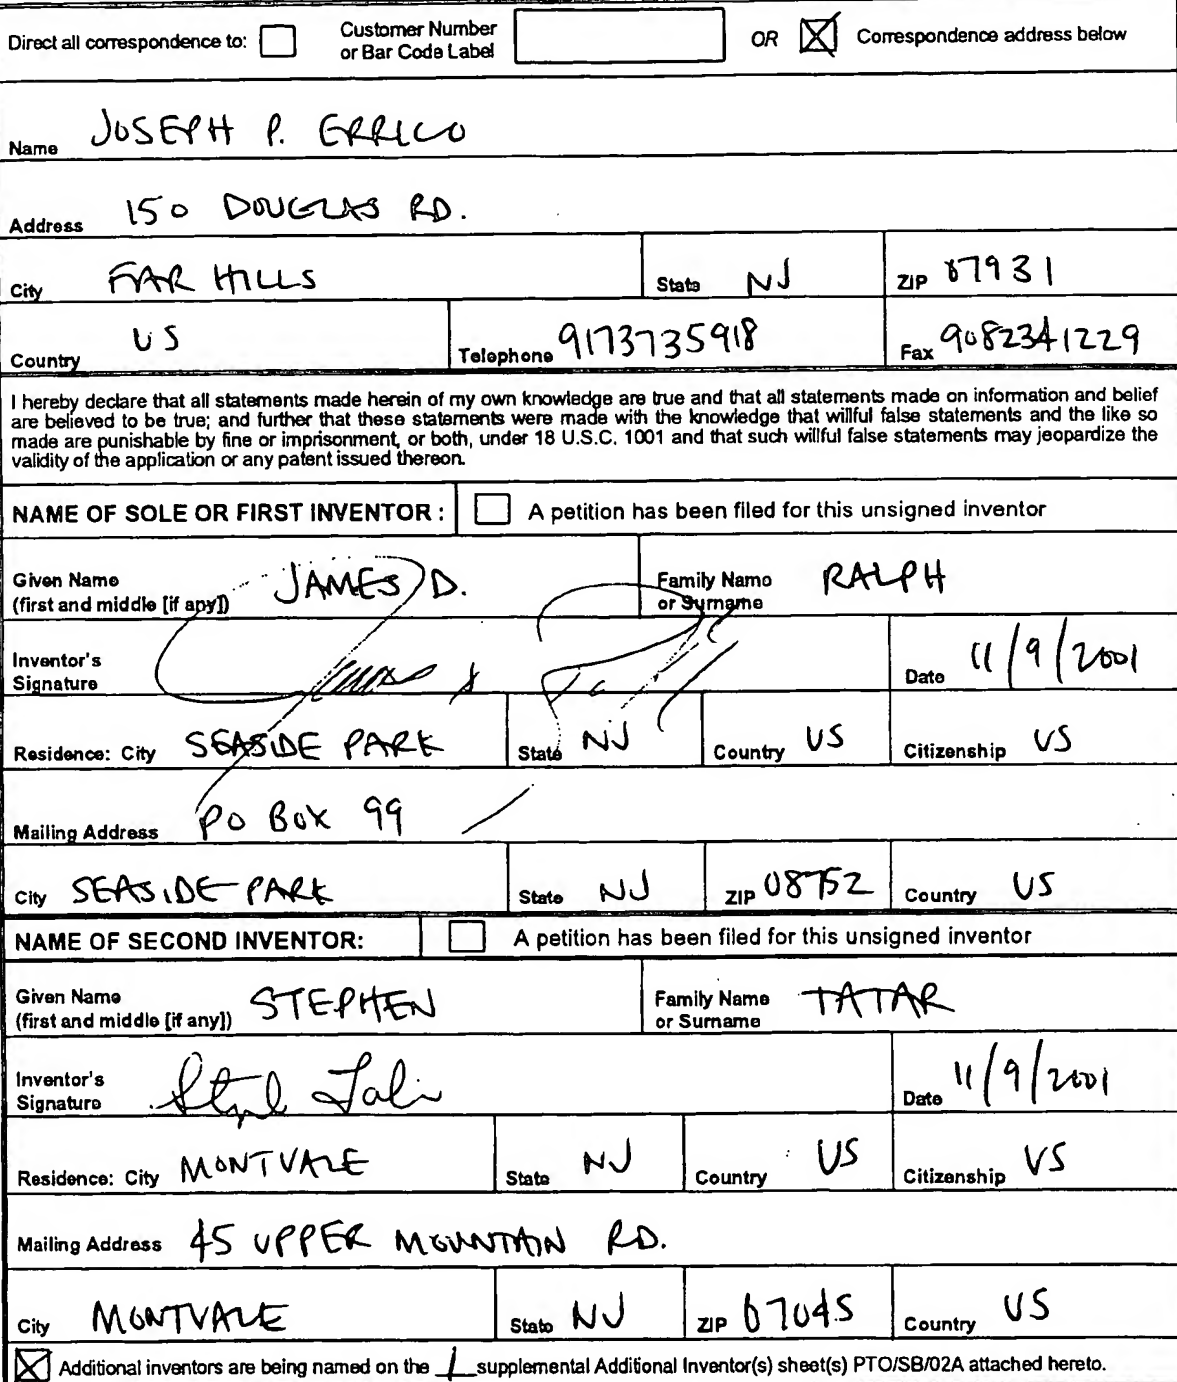 Direct all correspondence to: Customer Number or Bar Code Label OR Correspondence address below
Name JOSEPH P. ERRICO
Address 150 DOUGLAS RD.
City FAR HILLS State NJ ZIP 07931
Country US Telephone 9173735918 Fax 9082341229
I hereby declare that all statements made herein of my own knowledge are true and that all statements made on information and belief
are believed to be true; and further that these statements were made with the knowledge that willful false statements and the like so
made are punishable by fine or imprisonment, or both, under 18 U.S.C. 1001 and that such willful false statements may jeopardize the
validity of the application or any patent issued thereon.
NAME OF SOLE OR FIRST INVENTOR : A petition has been filed for this unsigned inventor
Given Name (first and middle [if any]) JAMES D. Family Name or Surname RALPH
Inventor's Signature Date 11/9/2001
Residence: City SEASIDE PARK State NJ Country US Citizenship US
Mailing Address PO BOX 99
City SEASIDE PARK State NJ ZIP 08752 Country US
NAME OF SECOND INVENTOR: A petition has been filed for this unsigned inventor
Given Name (first and middle [if any]) STEPHEN Family Name or Surname TATAR
Inventor's Signature Date 11/9/2001
Residence: City MONTVALE State NJ Country US Citizenship US
Mailing Address 45 UPPER MOUNTAIN RD.
City MONTVALE State NJ ZIP 07045 Country US
Additional inventors are being named on the 1 supplemental Additional Inventor(s) sheet(s) PTO/SB/02A attached hereto.